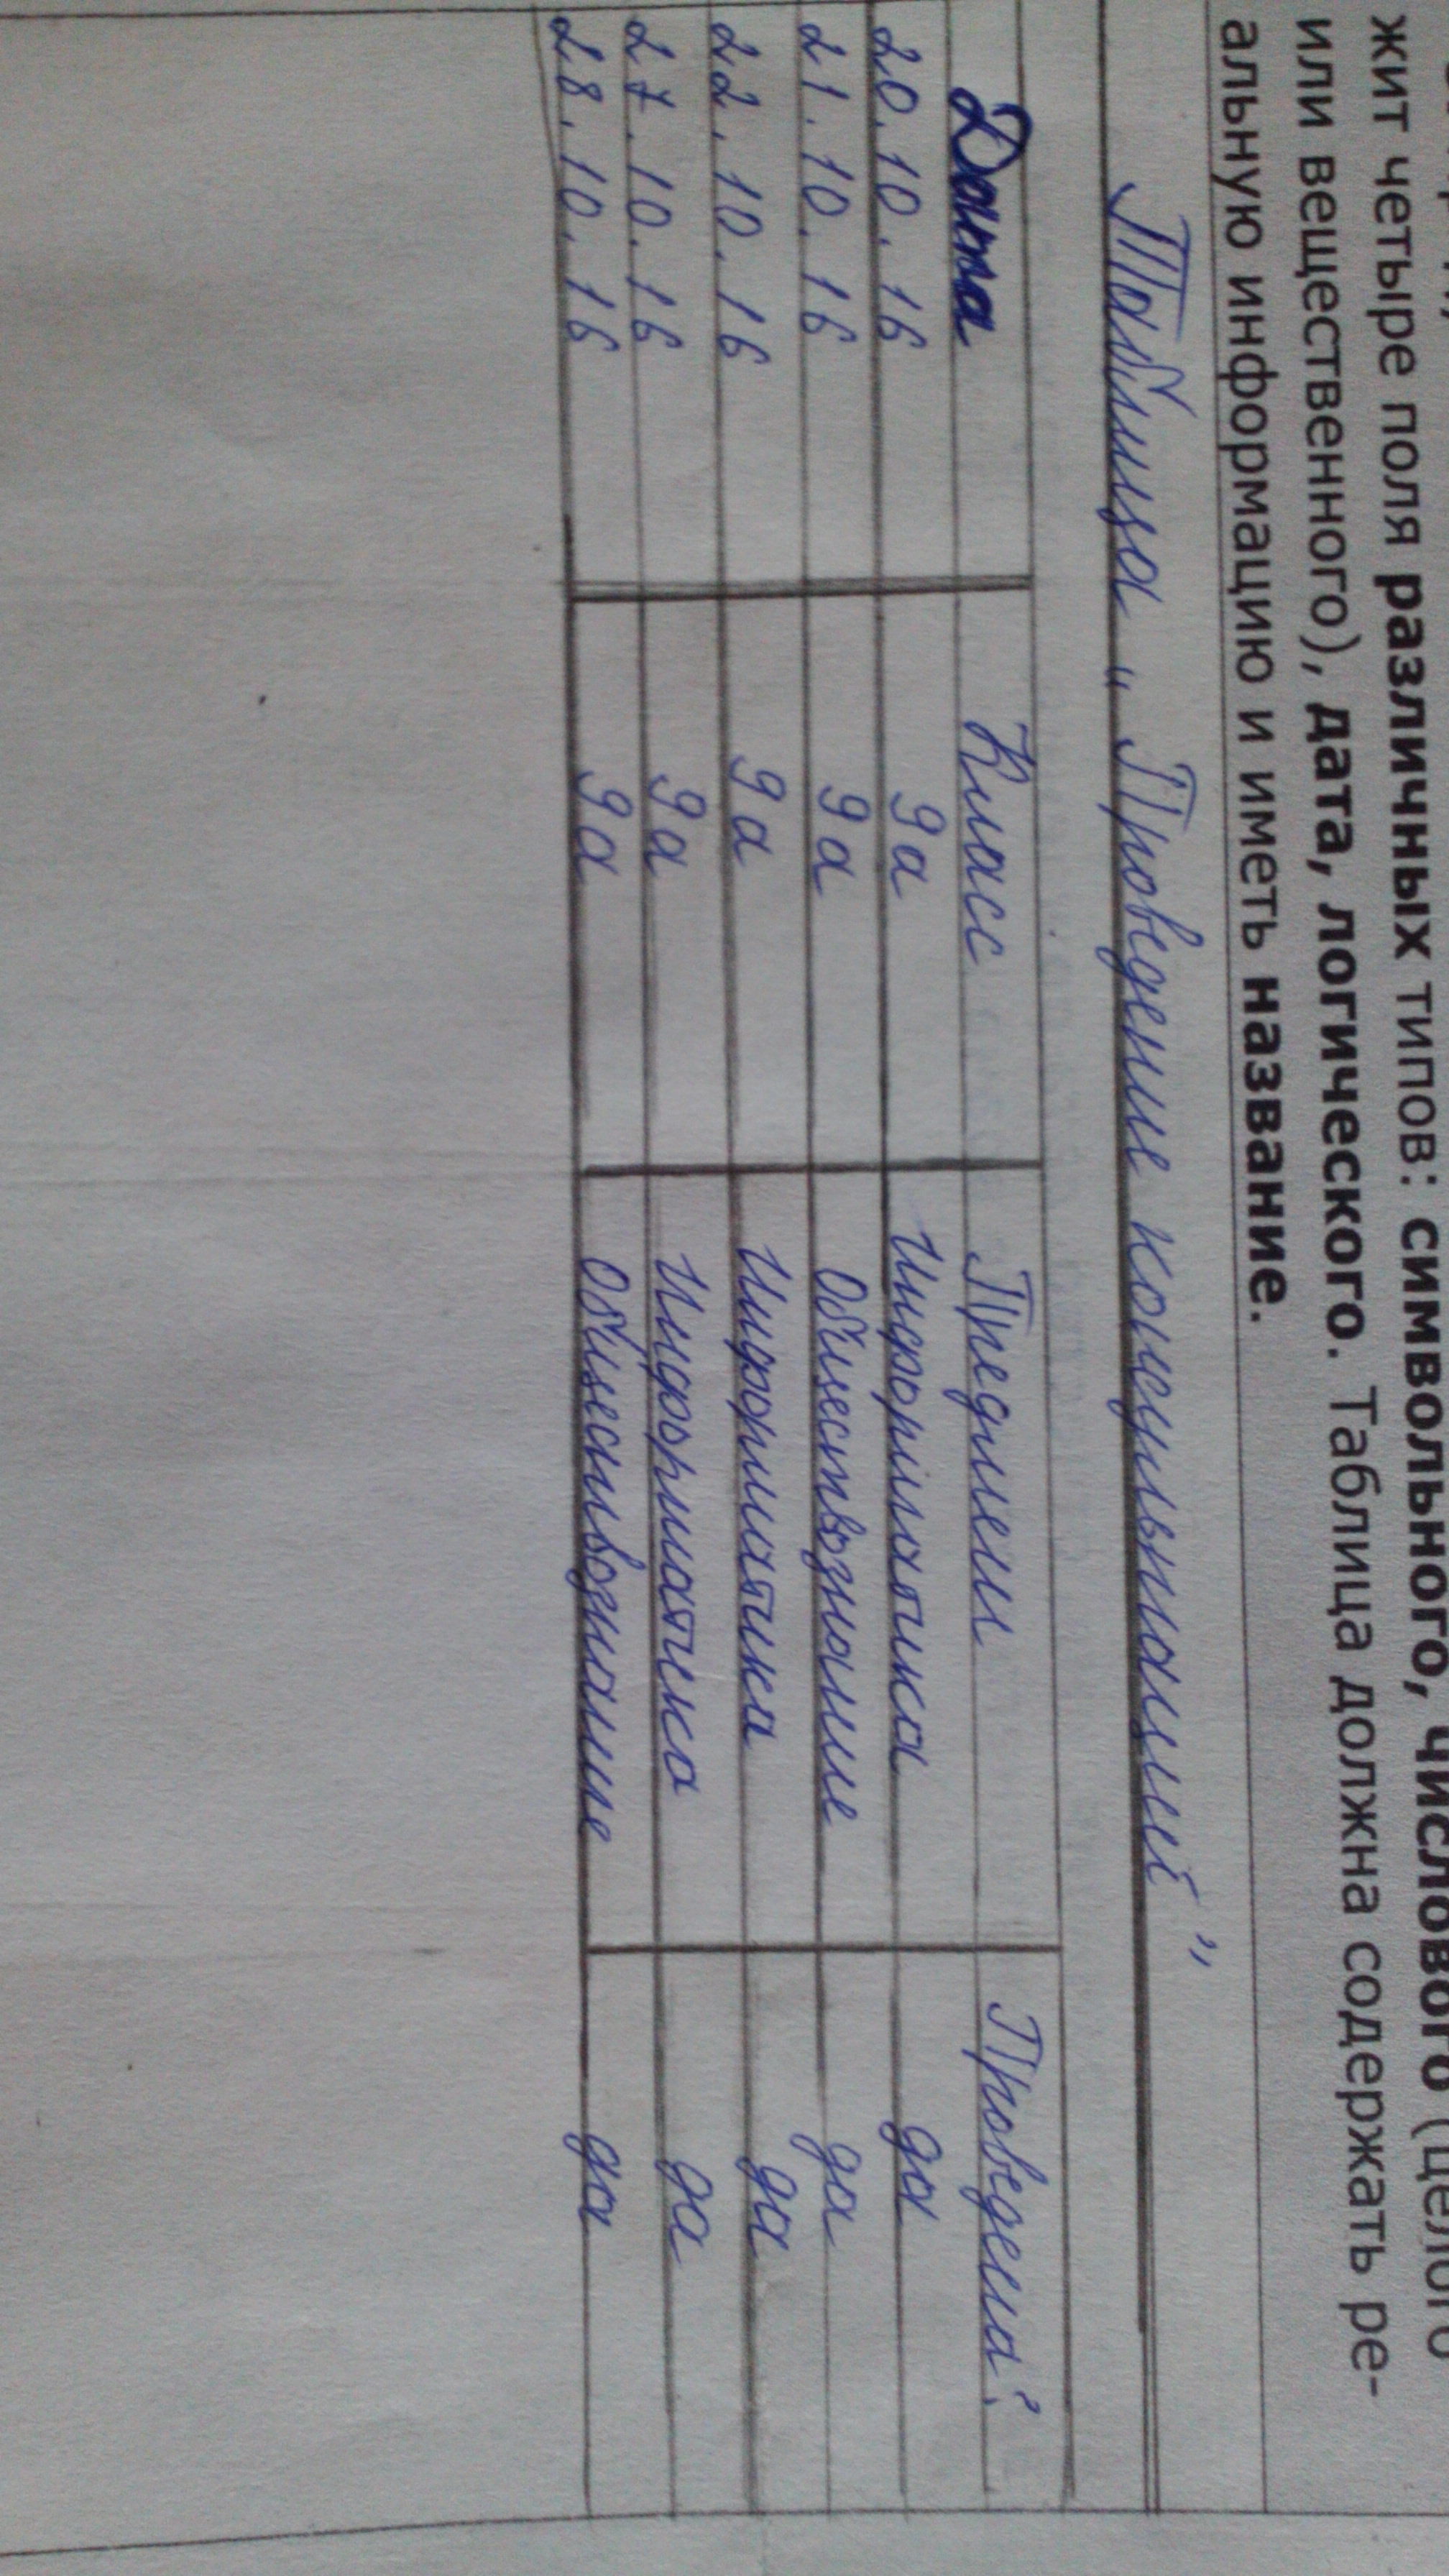 жит четыре поля различных типов: символьного, числового (целого
или вещественного), дата, логического. Таблица должна содержать ре-
альную информацию и иметь название.
Таблица „Проведение консультаций”
Дата Класс Предмет Проведена?
20.10.16 9а Информатика да
21.10.16 9а Обществознание да
22.10.16 9а Информатика да
27.10.16 9а Информатика да
28.10.16 9а Обществознание да